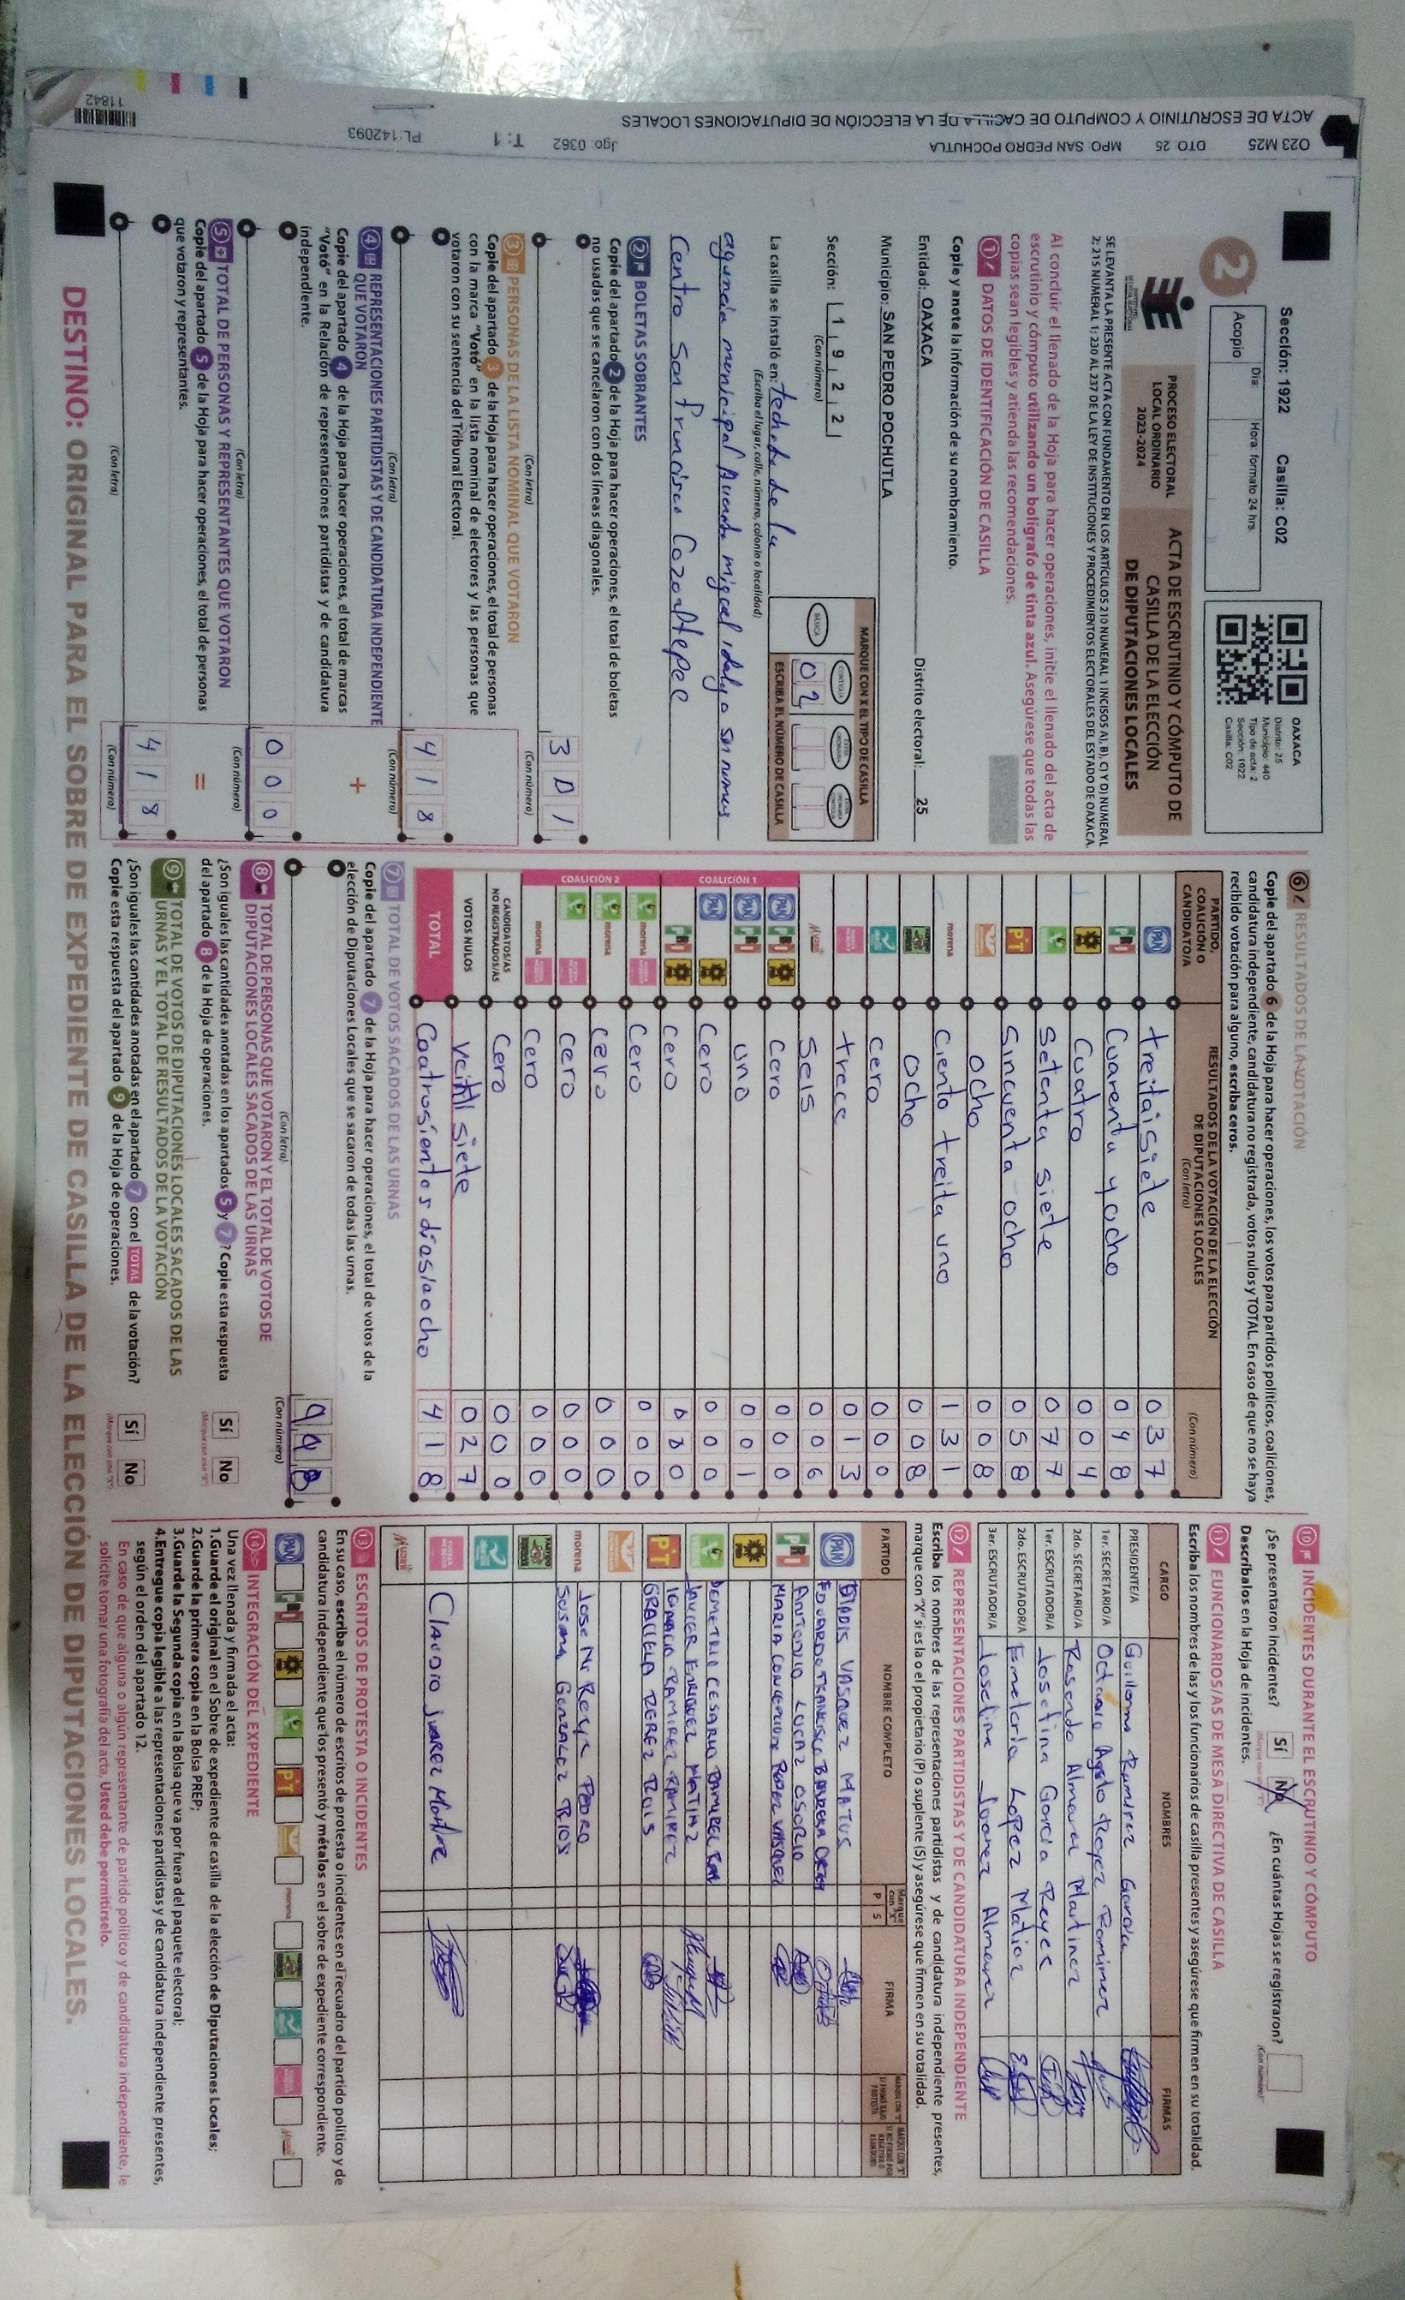 ACTA DE ESCRUTINIO Y CÓMPUTO DE CASILLA DE LA ELECCIÓN DE DIPUTACIONES LOCALES
O23 M25 DTO: 25 MPO: SAN PEDRO POCHUTLA Jgo: 0362 T: 1 PL:142093
11842
Sección: 1922 Casilla: C02
2
Día: Hora: formato 24 hrs.
Acopio
OAXACA
Distrito: 25
Municipio: 440
Tipo de acta: 2
Sección: 1922
Casilla: C02
PROCESO ELECTORAL
LOCAL ORDINARIO
2023-2024
ACTA DE ESCRUTINIO Y CÓMPUTO DE
CASILLA DE LA ELECCIÓN
DE DIPUTACIONES LOCALES
SE LEVANTA LA PRESENTE ACTA CON FUNDAMENTO EN LOS ARTÍCULOS 210 NUMERAL 1 INCISOS A), B), C) Y D) NUMERAL
2; 215 NUMERAL 1; 230 AL 237 DE LA LEY DE INSTITUCIONES Y PROCEDIMIENTOS ELECTORALES DEL ESTADO DE OAXACA.
Al concluir el llenado de la Hoja para hacer operaciones, inicie el llenado del acta de
escrutinio y cómputo utilizando un bolígrafo de tinta azul. Asegúrese que todas las
copias sean legibles y atienda las recomendaciones.
1 DATOS DE IDENTIFICACIÓN DE CASILLA
Copie y anote la información de su nombramiento.
Entidad: OAXACA Distrito electoral: 25
Municipio: SAN PEDRO POCHUTLA
Sección: 1 9 2 2
(Con número)
MARQUE CON X EL TIPO DE CASILLA
BÁSICA
ESCRIBA EL NÚMERO DE CASILLA
0 2
La casilla se instaló en: techado de la
(Escriba el lugar, calle, número, colonia o localidad)
agencia municipal Avenida miguel idalgo sn numero
Centro San Francisco Cozoaltepec
2 BOLETAS SOBRANTES
Copie del apartado 2 de la Hoja para hacer operaciones, el total de boletas
no usadas que se cancelaron con dos líneas diagonales.
301
(Con letra) (Con número)
3 PERSONAS DE LA LISTA NOMINAL QUE VOTARON
Copie del apartado 3 de la Hoja para hacer operaciones, el total de personas
con la marca "Votó" en la lista nominal de electores y las personas que
votaron con su sentencia del Tribunal Electoral.
418
(Con letra) (Con número)
4 REPRESENTACIONES PARTIDISTAS Y DE CANDIDATURA INDEPENDIENTE
QUE VOTARON
+
Copie del apartado 4 de la Hoja para hacer operaciones, el total de marcas
"Votó" en la Relación de representaciones partidistas y de candidatura
independiente.
000
(Con letra) (Con número)
5 TOTAL DE PERSONAS Y REPRESENTANTES QUE VOTARON
Copie del apartado 5 de la Hoja para hacer operaciones, el total de personas
que votaron y representantes.
=
418
(Con letra) (Con número)
6 RESULTADOS DE LA VOTACIÓN
Copie del apartado 6 de la Hoja para hacer operaciones, los votos para partidos políticos, coaliciones,
candidatura independiente, candidatura no registrada, votos nulos y TOTAL. En caso de que no se haya
recibido votación para alguno, escriba ceros.
PARTIDO,
COALICIÓN O
CANDIDATO/A
RESULTADOS DE LA VOTACIÓN DE LA ELECCIÓN
DE DIPUTACIONES LOCALES
(Con letra) (Con número)
PAN treitaisiete 037
PRI Cuarenta y ocho 048
Cuatro 004
Setenta siete 077
PT Sincuenta ocho 058
ocho 008
morena Ciento treita uno 131
ocho 008
cero 000
trece 013
Seis 006
COALICIÓN 1
PAN PRI cero 000
PAN PRI uno 001
PAN Cero 000
PRI cero 000
COALICIÓN 2
morena Cero 000
morena cero 000
cero 000
morena cero 000
CANDIDATOS/AS
NO REGISTRADOS/AS Cero 000
VOTOS NULOS veinti siete 027
TOTAL Coatrosientos diesiaocho 418
7 TOTAL DE VOTOS SACADOS DE LAS URNAS
Copie del apartado 7 de la Hoja para hacer operaciones, el total de votos de la
elección de Diputaciones Locales que se sacaron de todas las urnas.
(Con letra) (Con número)
8 TOTAL DE PERSONAS QUE VOTARON Y EL TOTAL DE VOTOS DE
DIPUTACIONES LOCALES SACADOS DE LAS URNAS
¿Son iguales las cantidades anotadas en los apartados 5 y 7? Copie esta respuesta
del apartado 8 de la Hoja de operaciones.
Sí No
9 TOTAL DE VOTOS DE DIPUTACIONES LOCALES SACADOS DE LAS
URNAS Y EL TOTAL DE RESULTADOS DE LA VOTACIÓN
¿Son iguales las cantidades anotadas en el apartado 7 con el TOTAL de la votación?
Copie esta respuesta del apartado 9 de la Hoja de operaciones.
Sí No
10 INCIDENTES DURANTE EL ESCRUTINIO Y CÓMPUTO
¿Se presentaron incidentes? Sí No ¿En cuántas Hojas se registraron?
(Con número)
Descríbalos en la Hoja de incidentes.
11 FUNCIONARIOS/AS DE MESA DIRECTIVA DE CASILLA
Escriba los nombres de las y los funcionarios de casilla presentes y asegúrese que firmen en su totalidad.
CARGO NOMBRES FIRMAS
PRESIDENTE/A Guillermo Ramirez
1er. SECRETARIO/A Reyez Ramirez
2do. SECRETARIO/A Rosendo Almaraz Martinez
1er. ESCRUTADOR/A Josefina Garcia Reyes
2do. ESCRUTADOR/A Emeleria Lopez Matias
3er. ESCRUTADOR/A Joseline Juarez Almaraz
12 REPRESENTACIONES PARTIDISTAS Y DE CANDIDATURA INDEPENDIENTE
Escriba los nombres de las representaciones partidistas y de candidatura independiente presentes,
marque con "X" si es la o el propietario (P) o suplente (S) y asegúrese que firmen en su totalidad.
PARTIDO NOMBRE COMPLETO Marque con "X" P S FIRMA
PAN VASQUEZ MATUS
EDUARDO FRANCISCO
PRI ANTONIO LUCAZ OSORIO
MARIA CONCEPCION
DEMETRIO CESARIO RAMIREZ
JAVIER ENRIQUEZ MARTINEZ
PT RAMIREZ RAMIREZ
GRACIELA PEREZ RUIS
morena Jose Reye PEDRO
SUSANA GONZALEZ RIOS
CLAUDIO JUAREZ
13 ESCRITOS DE PROTESTA O INCIDENTES
En su caso, escriba el número de escritos de protesta o incidentes en el recuadro del partido político y de
candidatura independiente que los presentó y métalos en el sobre de expediente correspondiente.
PAN PRI PT morena
14 INTEGRACIÓN DEL EXPEDIENTE
Una vez llenada y firmada el acta:
1.Guarde el original en el Sobre de expediente de casilla de la elección de Diputaciones Locales;
2.Guarde la primera copia en la Bolsa PREP;
3.Guarde la Segunda copia en la Bolsa que va por fuera del paquete electoral;
4.Entregue copia legible a las representaciones partidistas y de candidatura independiente presentes,
según el orden del apartado 12.
En caso de que alguna o algún representante de partido político y de candidatura independiente, le
solicite tomar una fotografía del acta, Usted debe permitírselo.
DESTINO: ORIGINAL PARA EL SOBRE DE EXPEDIENTE DE CASILLA DE LA ELECCIÓN DE DIPUTACIONES LOCALES.